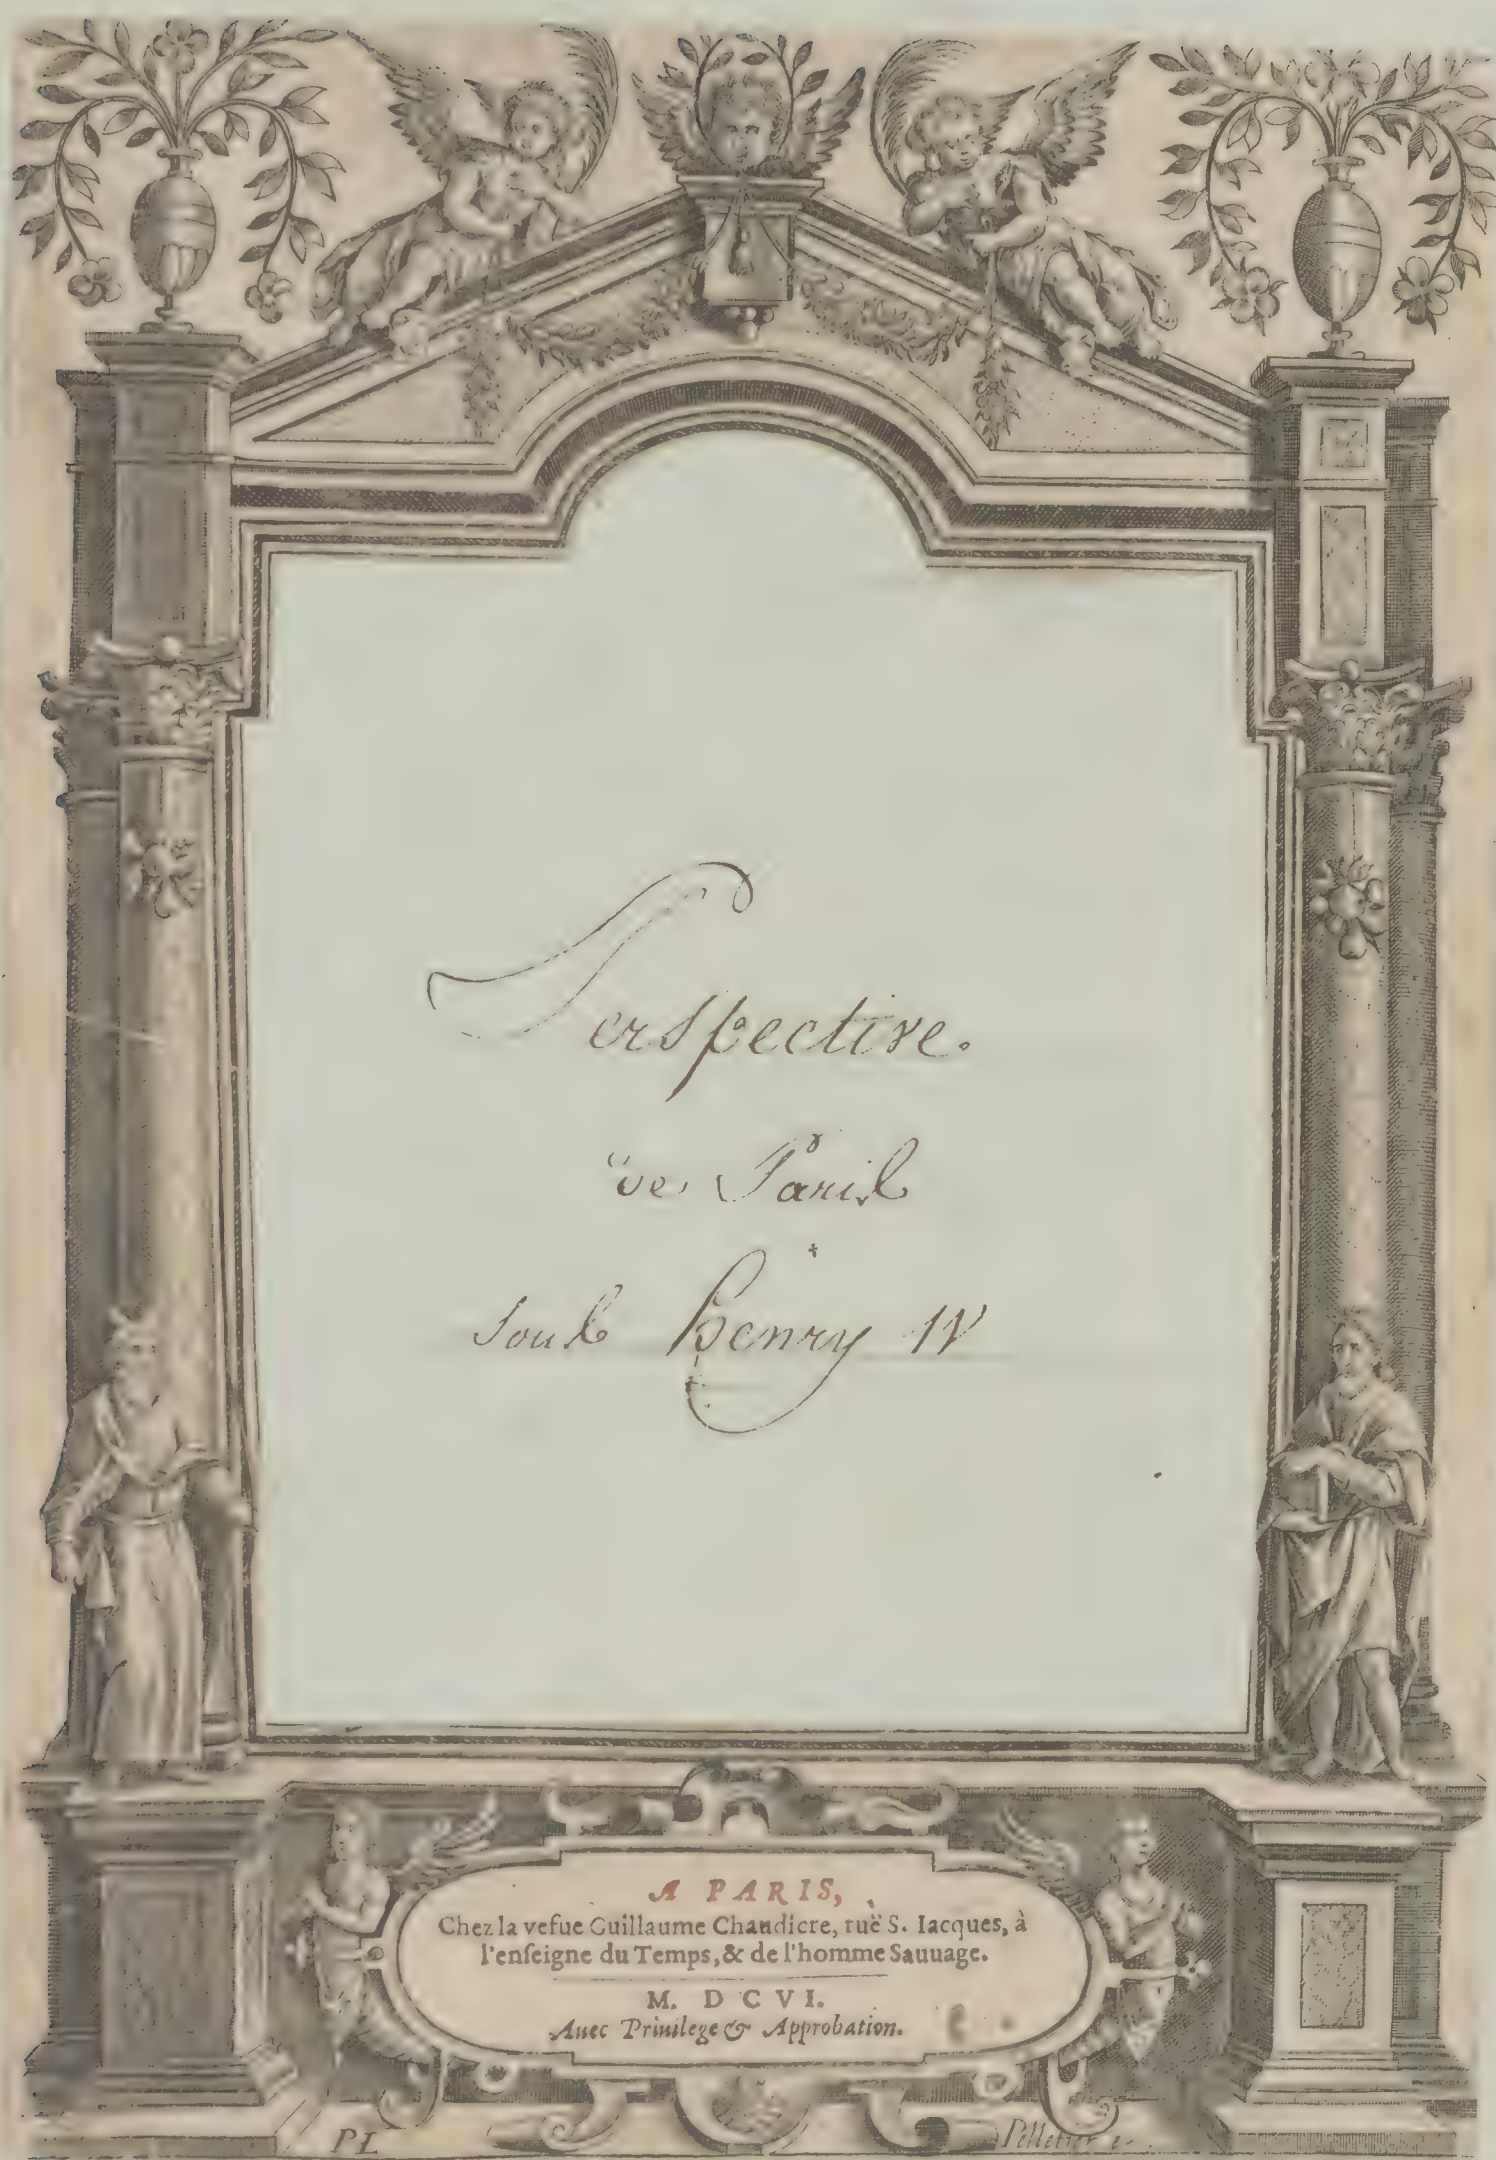 Perspective.
de Paris
sous Henry IV
A PARIS,
Chez la vefue Guillaume Chaudiere, ruë S. Iacques, à
l'enſeigne du Temps, & de l'homme Sauuage.
M. D C V I.
Auec Priuilege & Approbation.
PL
Pelletier